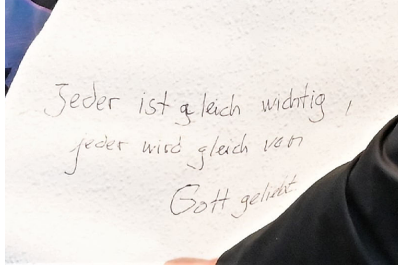 Jeder ist gleich wichtig,
jeder wird gleich von
Gott geliebt